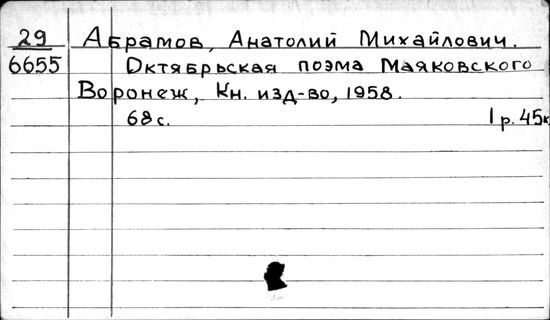 29 Абрамов, Анатолий Михайлович.
6655 Октябрьская поэма Маяковского
Воронеж, Кн. изд-во, 1958.
68 с. 1 р. 45к